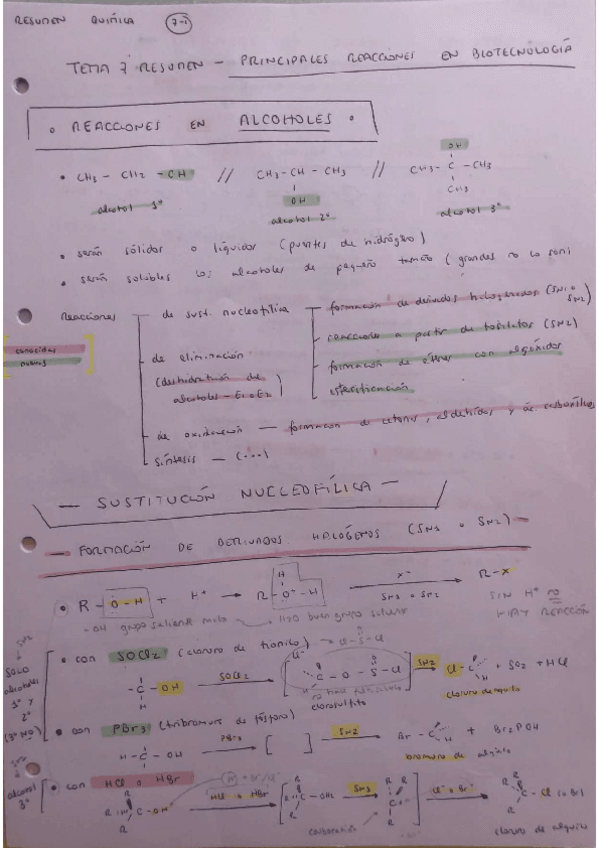 RESUMEN QUIÍICA 7-1
TEMA 7 RESUMEN — PRINCIPALES REACCIONES EN BIOTECNOLOGÍA
• REACCIONES EN ALCOHOLES •
• CH3 - CH2 - OH // CH3 - CH - CH3 // CH3 - C - CH3
OH OH CH3
alcohol 1º alcohol 2º alcohol 3º
• serán sólidos o líquidos (puentes de hidrógeno)
• serán solubles los alcoholes de pequeño tamaño (grandes no lo son)
Reacciones
conocidas
nuevas
de sust. nucleofílica — formación de derivados halogenados (SN1 o SN2)
reacciones a partir de tosilatos (SN2)
formación de éteres con alcóxidos
esterificación
de eliminación
(deshidratación de alcoholes - E1 o E2)
de oxidación — formación de cetonas, aldehídos y ác. carboxílicos
síntesis — (...)
— SUSTITUCIÓN NUCLEOFÍLICA —
— FORMACIÓN DE DERIVADOS HALÓGENOS (SN1 o SN2) —
• R - O - H + H+ → R - O+ - H X- SN1 o SN2 R - X
H
SIN H+ NO HAY REACCIÓN
- OH grupo saliente malo → H2O buen grupo saliente
SN2
SOLO alcoholes 1º y 2º (3º NO)
• con SOCl2 (cloruro de tionilo) → Cl - S - Cl
- C - OH SOCl2 C - O - S - Cl SN2 Cl - C + SO2 + HCl
H O Cl- H
clorosulfito cloruro de alquilo
• con PBr3 (tribromuro de fósforo)
H - C - OH PBr3 [ ] SN2 Br - C + Br2POH
H H
bromuro de alquilo
alcohol 3º
• con HCl o HBr
R C - OH HCl o HBr C - OH2 SN1 C+ Cl- o Br- C - Cl (o Br)
R R R R
carbocatión cloruro de alquilo